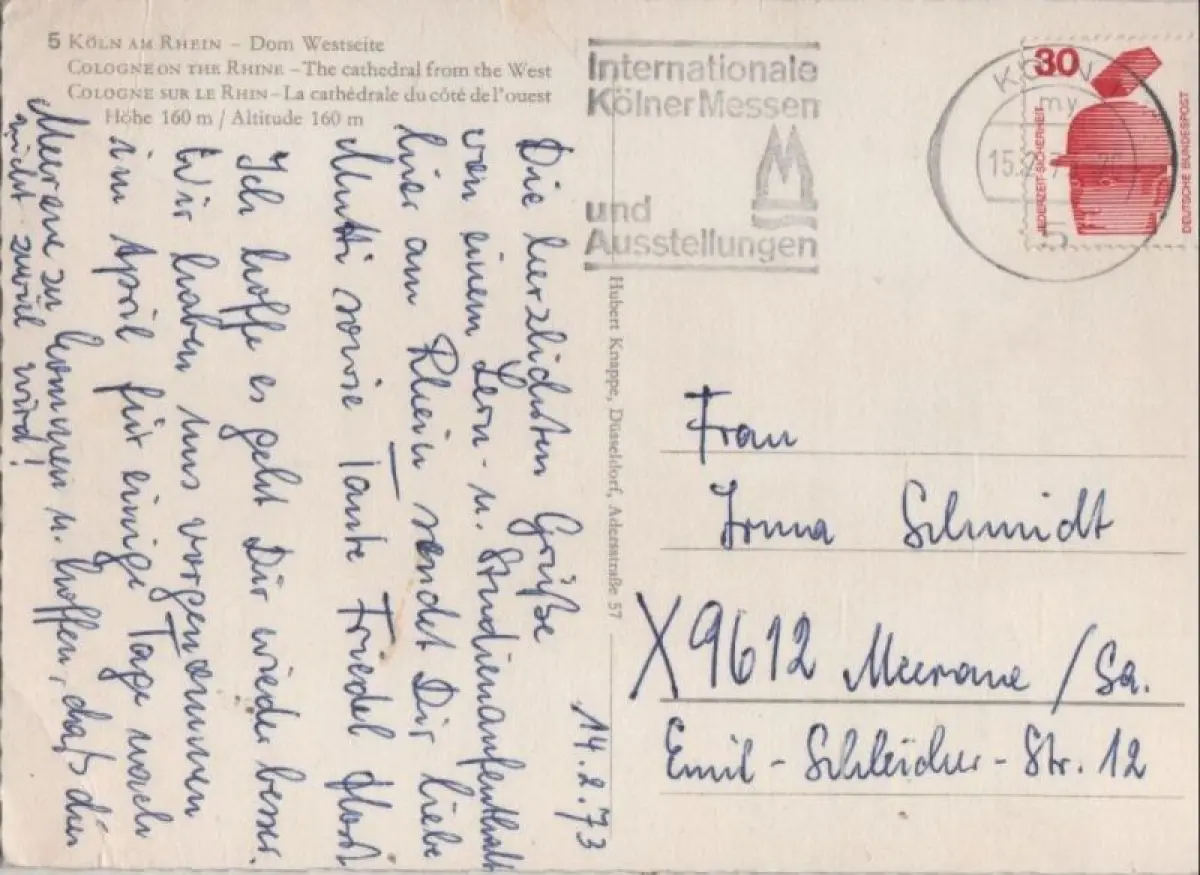 5 KÖLN AM RHEIN – Dom Westseite
COLOGNE ON THE RHINE – The cathedral from the West
COLOGNE SUR LE RHIN – La cathédrale du côté de l'ouest
Höhe 160 m / Altitude 160 m
Internationale
KölnerMessen
und
Ausstellungen
KÖLN
my
15.2.7
51
30
JEDERZEIT SICHERHEIT
DEUTSCHE BUNDESPOST
14.2.73
Die herzlichsten Grüße
von einem Lern- u. Studienaufenthalt
hier am Rhein sendet Dir liebe
Mutti sowie Tante Friedel Horst
Ich hoffe es geht Dir wieder besser.
Wir haben uns vorgenommen
im April für einige Tage nach
Meerane zu kommen u. hoffen, daß dir's
nicht zuviel wird!
Hubert Knappe, Düsseldorf, Adersstraße 57
Frau
Irma Schmidt
X9612 Meerane/Sa.
Emil-Schleicher-Str. 12